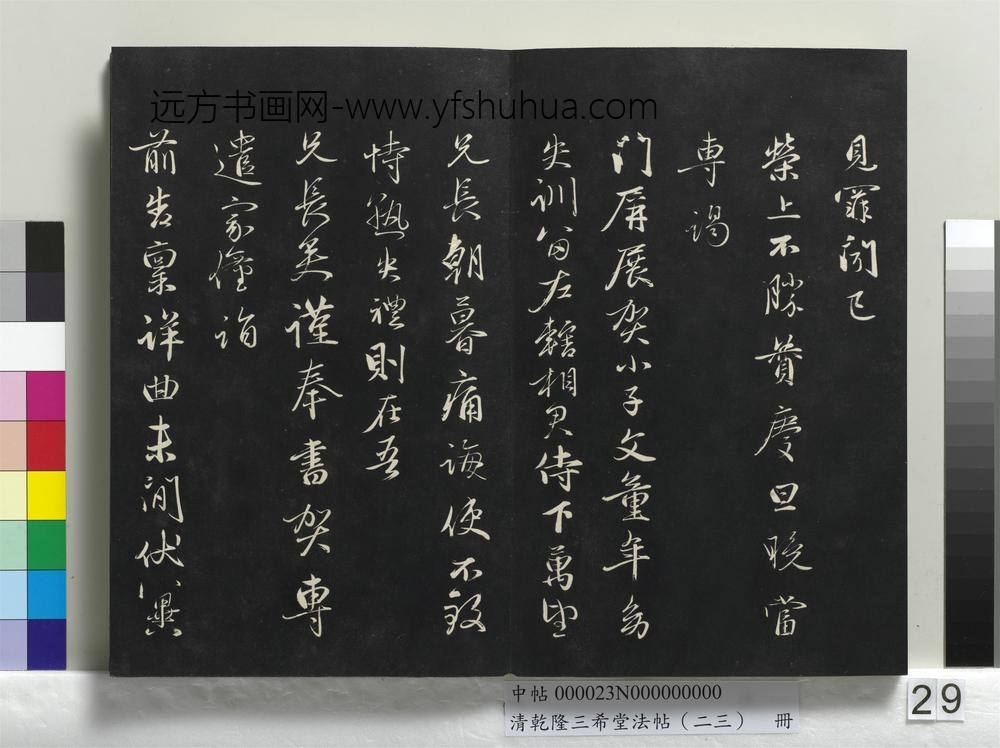 远方书画网-www.yfshuhua.com
見罪聞已
榮上不勝贊慶旦晚當
専謁
門屏展賀小子文童年幼
失訓留左轄相公侍下萬望
兄長朝暮痛誨使不致
恃執失禮則在吾
兄長矣謹奉書賀専
遣家僮詣
前告稟詳曲未間伏冀
中帖 000023N000000000
清乾隆三希堂法帖（二三） 冊
29